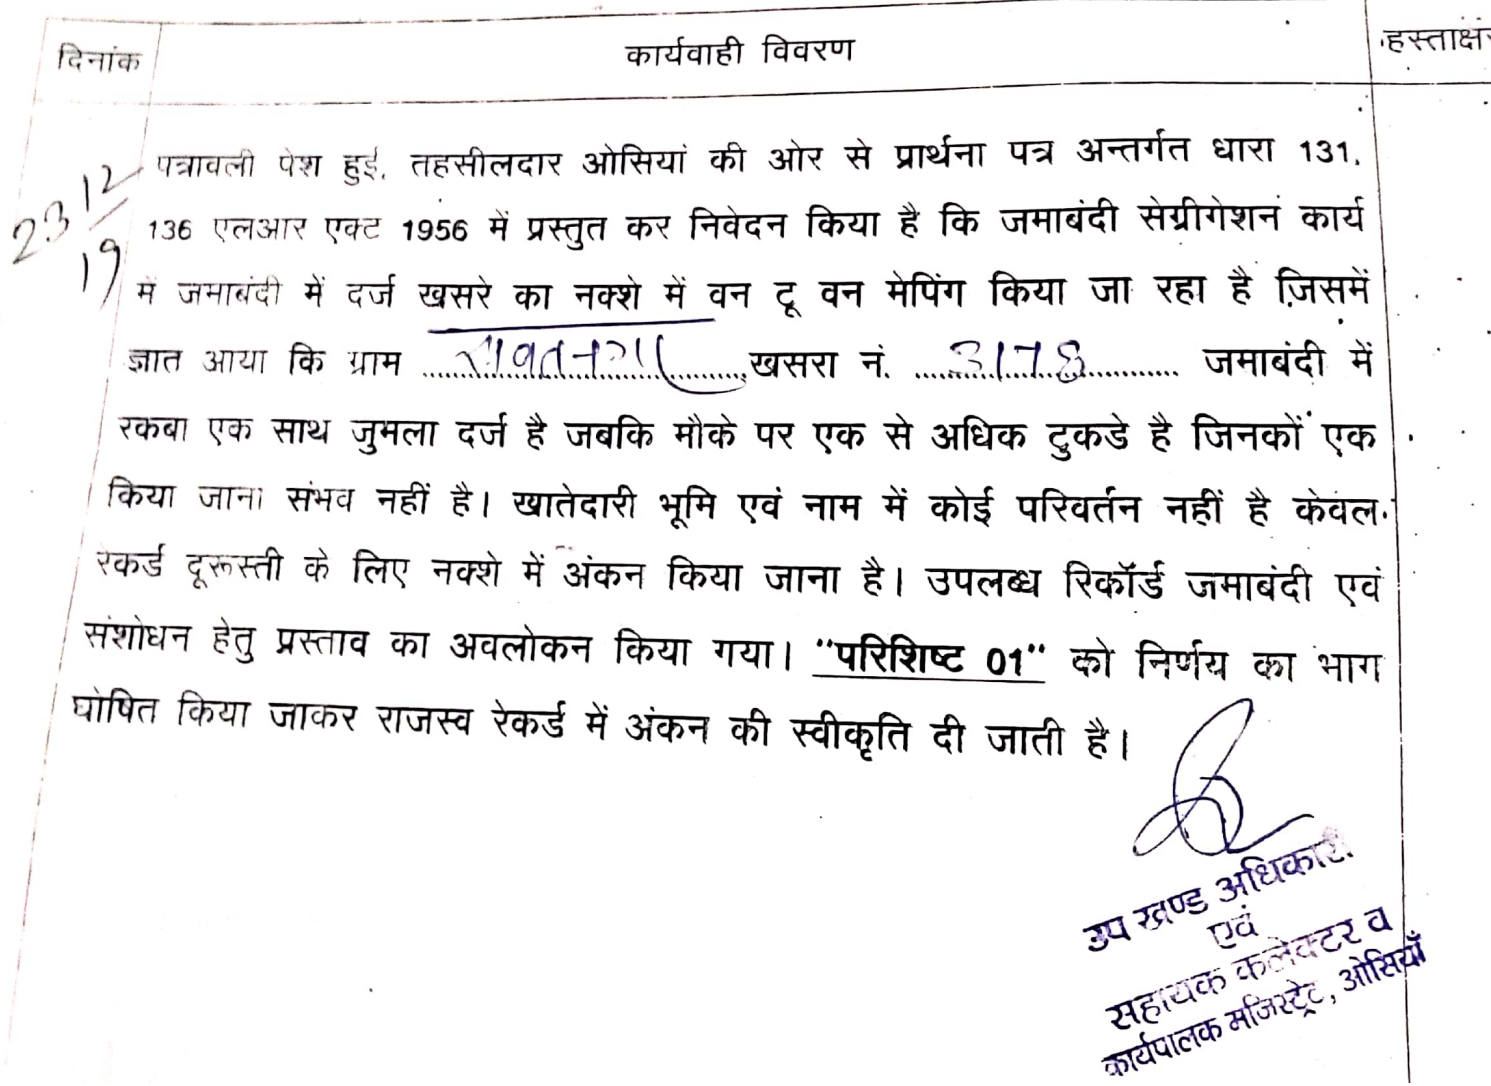 दिनांक कार्यवाही विवरण हस्ताक्षर
23/12/19
पत्रावली पेश हुई. तहसीलदार ओसियां की ओर से प्रार्थना पत्र अन्तर्गत धारा 131,
136 एलआर एक्ट 1956 में प्रस्तुत कर निवेदन किया है कि जमाबंदी सेग्रीगेशन कार्य
में जमाबंदी में दर्ज खसरे का नक्शे में वन टू वन मेपिंग किया जा रहा है जिसमें
ज्ञात आया कि ग्राम ................ खसरा नं. ....3178.... जमाबंदी में
रकबा एक साथ जुमला दर्ज है जबकि मौके पर एक से अधिक टुकडे है जिनकों एक
किया जाना संभव नहीं है। खातेदारी भूमि एवं नाम में कोई परिवर्तन नहीं है केवल
रेकर्ड दूरूस्ती के लिए नक्शे में अंकन किया जाना है। उपलब्ध रिकॉर्ड जमाबंदी एवं
संशोधन हेतु प्रस्ताव का अवलोकन किया गया। "परिशिष्ट 01" को निर्णय का भाग
घोषित किया जाकर राजस्व रेकर्ड में अंकन की स्वीकृति दी जाती है।
उप खण्ड अधिकारी
एवं
सहायक कलेक्टर व
कार्यपालक मजिस्ट्रेट, ओसियाँ